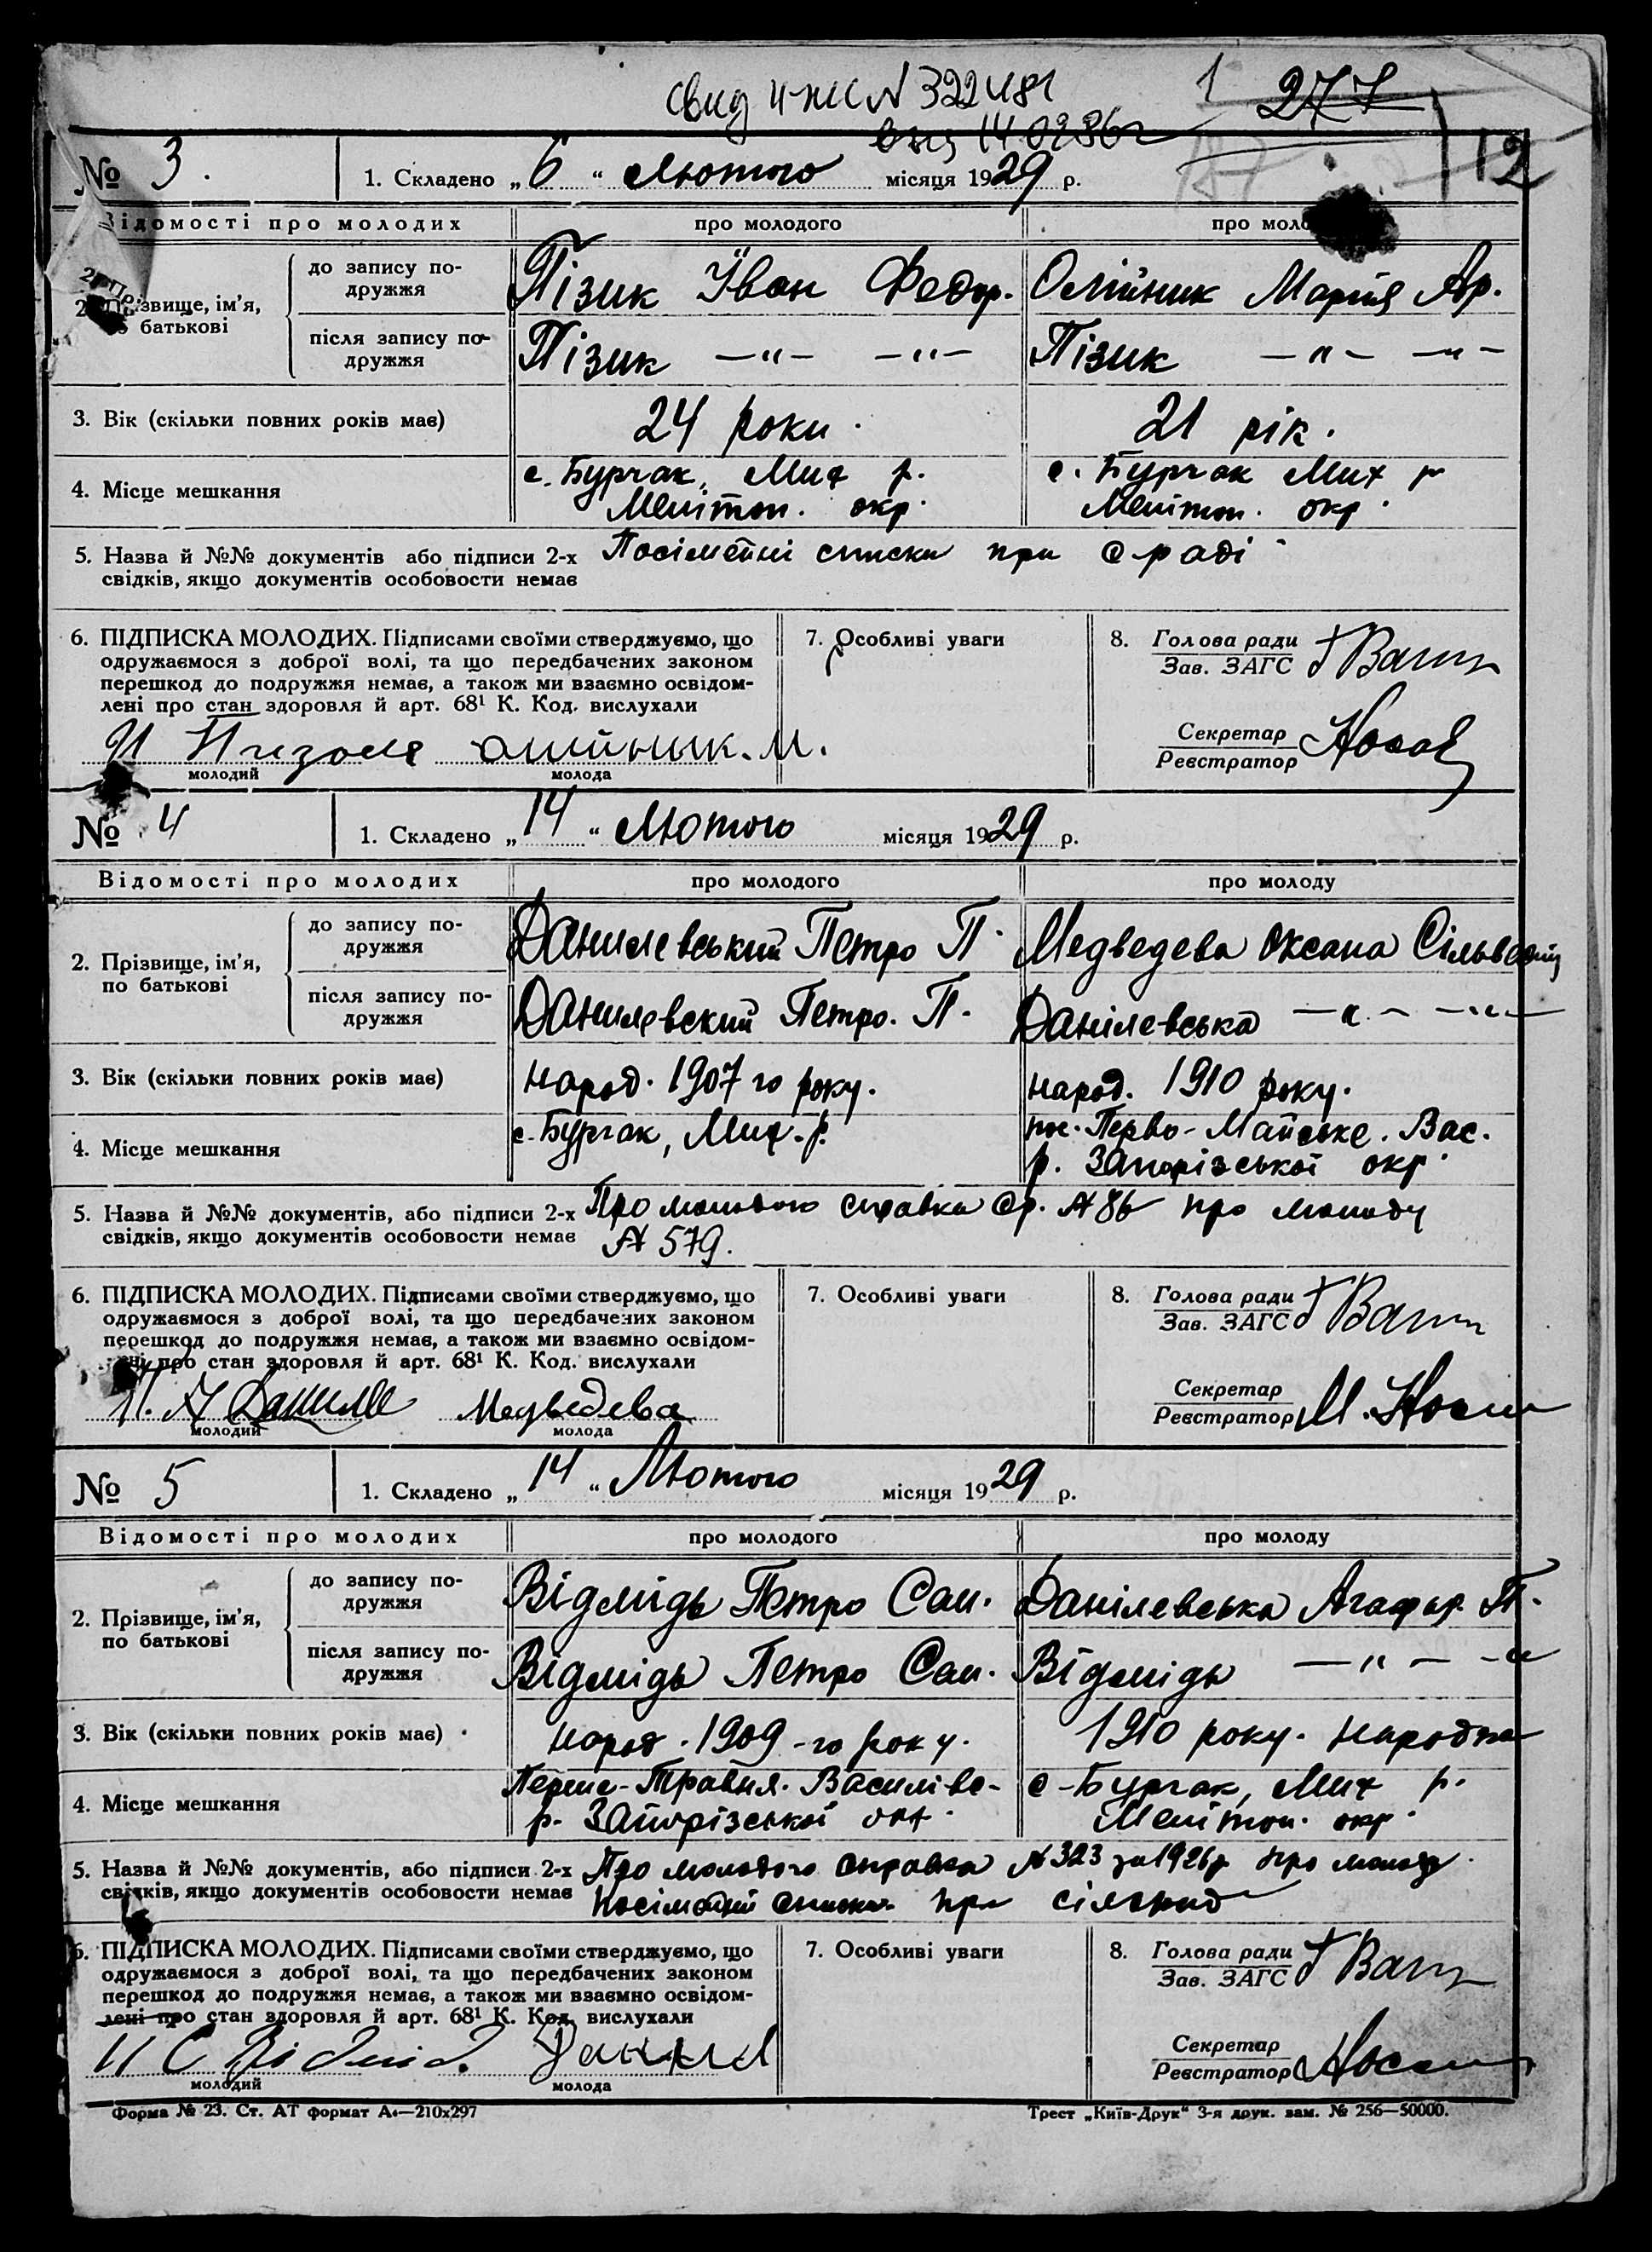 свид II-ЖС N 322481
14.02.86г
1 277
187
112
№ 3. 1. Складено „6“ Лютого місяця 1929 р.
Відомості про молодих про молодого про моло
2. Прізвище, ім'я, батькові
до запису подружжя Пізик Іван Федор. Олійник Марія Ар.
після запису подружжя Пізик —"— —"— Пізик —"— —"—
3. Вік (скільки повних років має) 24 роки. 21 рік.
4. Місце мешкання с. Бурчак, Мих р. с. Бурчак Мих р
Мелітоп. окр. Мелітоп. окр.
5. Назва й №№ документів або підписи 2-х Посімейні списки при с-раді
свідків, якщо документів особовости немає
6. ПІДПИСКА МОЛОДИХ. Підписами своїми стверджуємо, що
одружаємося з доброї волі, та що передбачених законом
перешкод до подружжя немає, а також ми взаємно освідом-
лені про стан здоровля й арт. 68¹ К. Код. вислухали
7. Особливі уваги
8. Голова ради
Зав. ЗАГС
Секретар
Реєстратор
олійнык. М.
молодий молода
№ 4 1. Складено „14“ Лютого місяця 1929 р.
Відомості про молодих про молодого про молоду
2. Прізвище, ім'я, по батькові
до запису подружжя Данилевський Петро П. Медведева Оксана
після запису подружжя Данилевский Петро. П. Данілевська —"— —"—
3. Вік (скільки повних років має) народ. 1907 го року. народ. 1910 року.
4. Місце мешкання с. Бурчак, Мих. р. пос. Перво-Майське. Вас.
р. Запорізської окр.
5. Назва й №№ документів, або підписи 2-х Про молодого справка Ср. № 86 про молоду
свідків, якщо документів особовости немає № 579.
6. ПІДПИСКА МОЛОДИХ. Підписами своїми стверджуємо, що
одружаємося з доброї волі, та що передбачених законом
перешкод до подружжя немає, а також ми взаємно освідом-
про стан здоровля й арт. 68¹ К. Код. вислухали
7. Особливі уваги
8. Голова ради
Зав. ЗАГС
Секретар
Реєстратор
Медведева
молодий молода
№ 5 1. Складено „14“ Лютого місяця 1929 р.
Відомості про молодих про молодого про молоду
2. Прізвище, ім'я, по батькові
до запису подружжя Відмідь Петро Сам. Данілевська Агаф П.
після запису подружжя Відмідь Петро Сам. Відмідь —"— —"—
3. Вік (скільки повних років має) народ. 1909-го року. 1910 року. народж
4. Місце мешкання Перше-Травня. Василівс- с-Бурчак, Мих р.
р. Запорізської окр. Мелітоп. окр.
5. Назва й №№ документів, або підписи 2-х Про молодого справка № 323 за 1926р про молоду.
свідків, якщо документів особовости немає посімейні списки при сільраді
6. ПІДПИСКА МОЛОДИХ. Підписами своїми стверджуємо, що
одружаємося з доброї волі, та що передбачених законом
перешкод до подружжя немає, а також ми взаємно освідом-
лені про стан здоровля й арт. 68¹ К. Код. вислухали
7. Особливі уваги
8. Голова ради
Зав. ЗАГС
Секретар
Реєстратор
молодий молода
Форма № 23. Ст. АТ формат А₄—210х297 Трест „Київ-Друк“ 3-я друк. зам. № 256—50000.